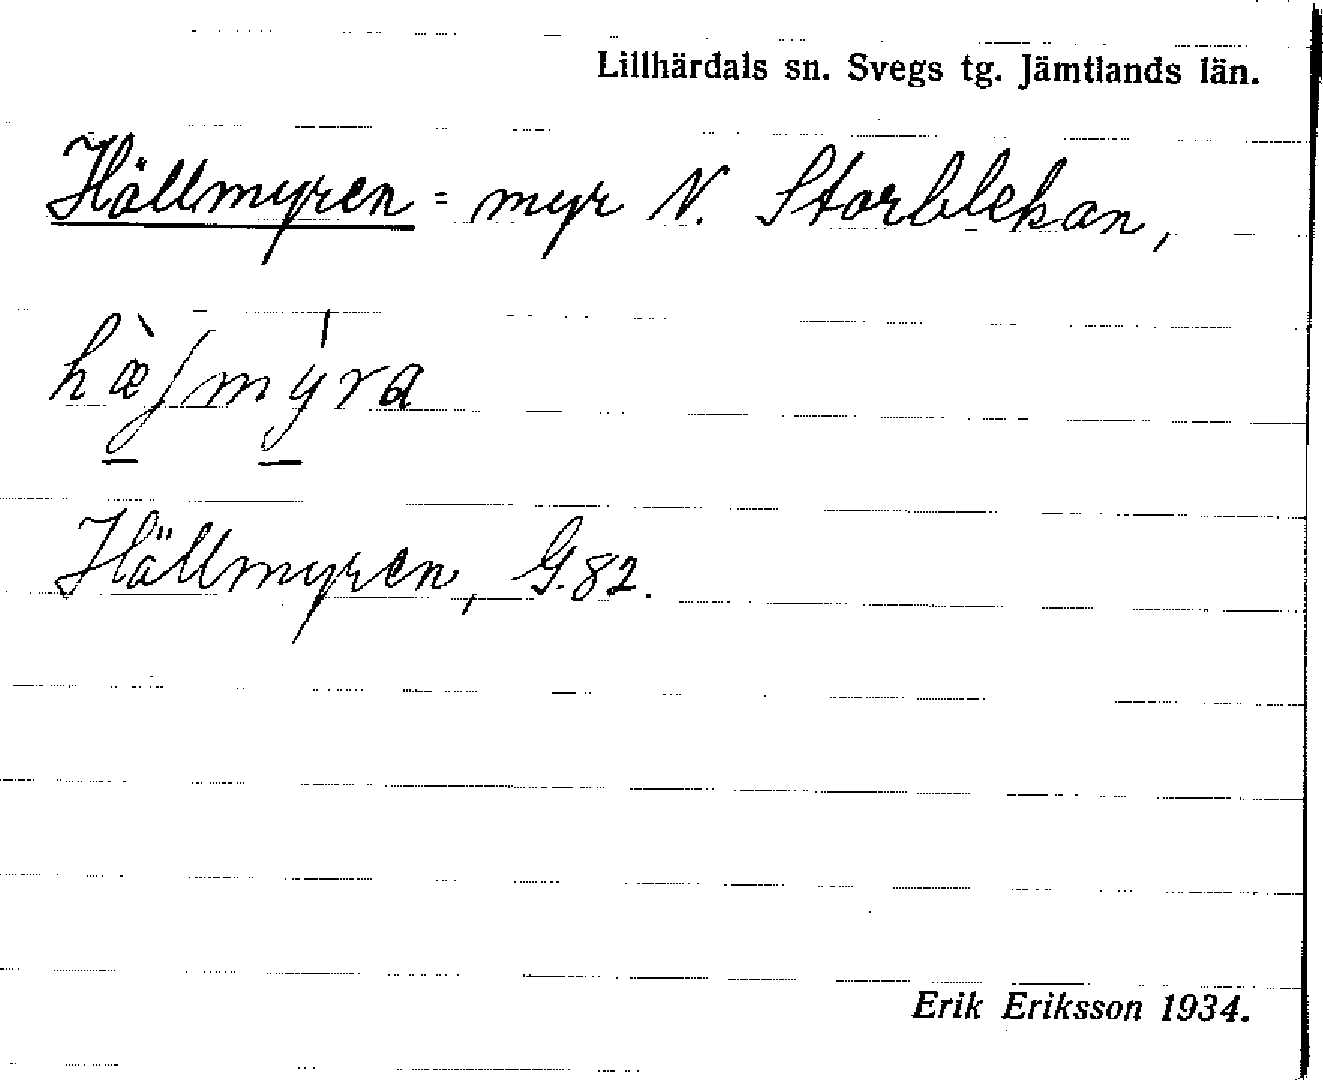 Lillhärdals sn. Svegs tg. Jämtlands län.
Hällmyren = myr N. Storblekan,
Hällmyren, G. 82.
Erik Eriksson 1934.